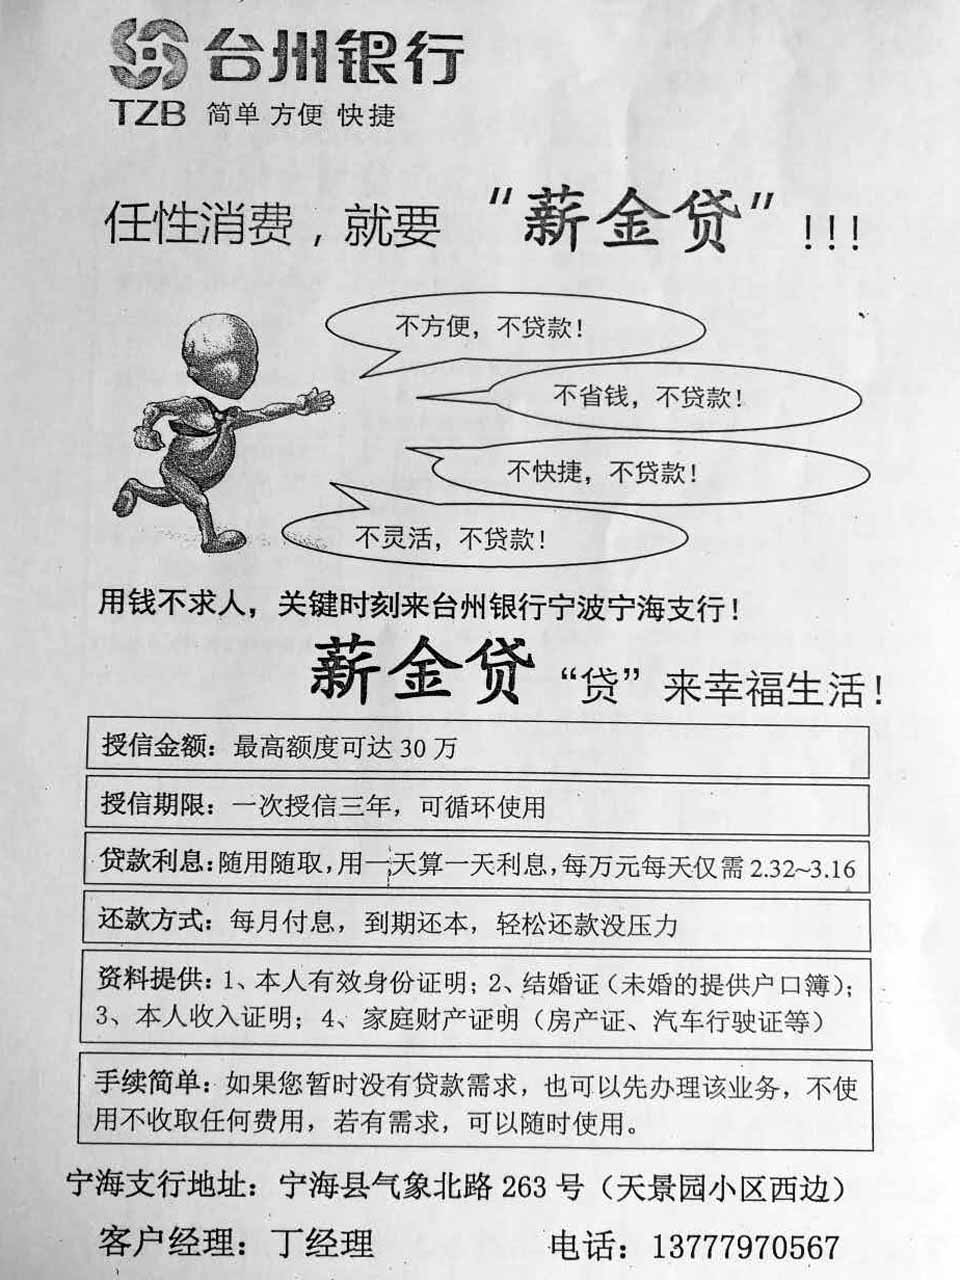 台州银行
TZB 简单 方便 快捷
任性消费，就要 “薪金贷”!!!
不方便，不贷款！
不省钱，不贷款！
不快捷，不贷款！
不灵活，不贷款！
用钱不求人，关键时刻来台州银行宁波宁海支行！
薪金贷 “贷” 来幸福生活！
授信金额：最高额度可达 30 万
授信期限：一次授信三年，可循环使用
贷款利息：随用随取，用一天算一天利息，每万元每天仅需 2.32~3.16
还款方式：每月付息，到期还本，轻松还款没压力
资料提供：1、本人有效身份证明；2、结婚证（未婚的提供户口簿）；
3、本人收入证明；4、家庭财产证明（房产证、汽车行驶证等）
手续简单：如果您暂时没有贷款需求，也可以先办理该业务，不使
用不收取任何费用，若有需求，可以随时使用。
宁海支行地址：宁海县气象北路 263 号（天景园小区西边）
客户经理：丁经理 电话：13777970567